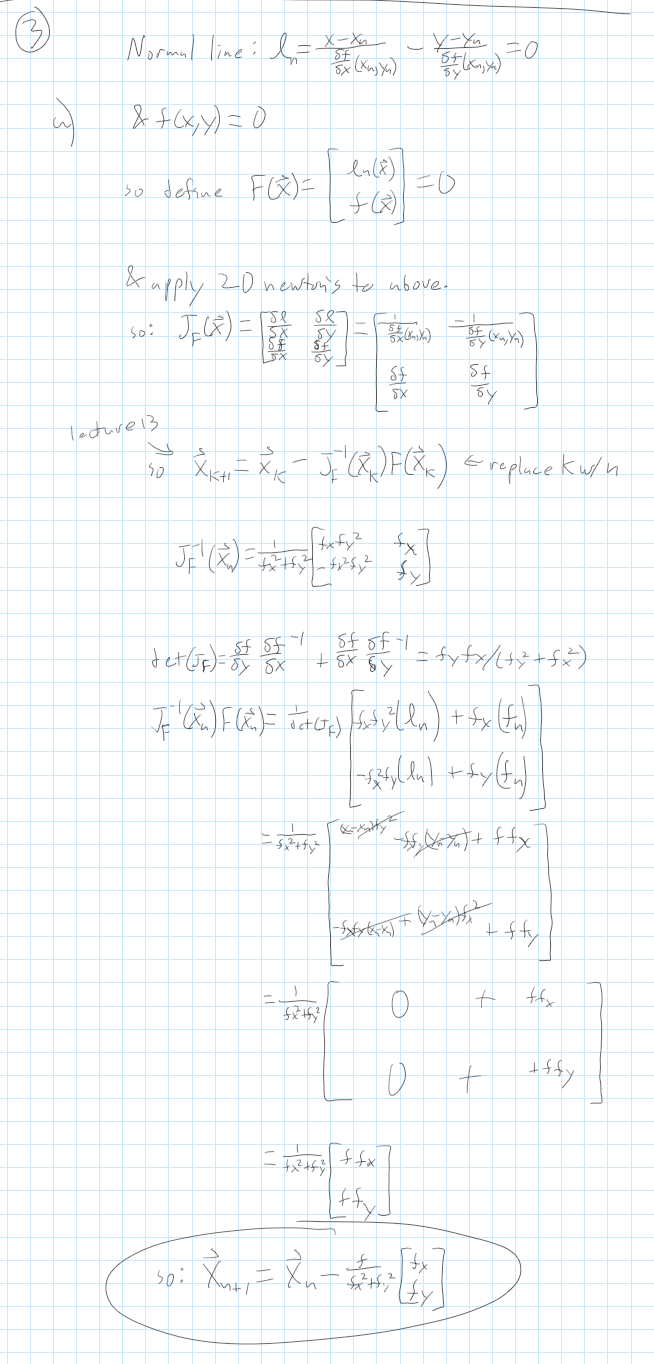 ③
Normal line: lₙ = (x-xₙ)/(δf/δx (xₙ,yₙ)) - (y-yₙ)/(δf/δy (xₙ,yₙ)) = 0
a) & f(x,y) = 0
so define F(x⃗) = [lₙ(x⃗) ; f(x⃗)] = 0
& apply 2D newton's to above.
so: J_F(x⃗) = [δl/δx δl/δy ; δf/δx δf/δy] = [1/(δf/δx (xₙ,yₙ)) -1/(δf/δy (xₙ,yₙ)) ; δf/δx δf/δy]
lecture 13
so x⃗_{k+1} = x⃗_k - J_F^{-1}(x⃗_k) F(x⃗_k) ← replace k w/ n
J_F^{-1}(x⃗ₙ) = 1/(fx²+fy²) [fxfy² fx ; -fx²fy² fy]
det(J_F) = δf/δy δf/δx^{-1} + δf/δx δf/δy^{-1} = fyfx/(fy²+fx²)
J_F^{-1}(x⃗ₙ) F(x⃗ₙ) = 1/det(J_F) [fxfy²(lₙ) + fx(fₙ) ; -fx²fy(lₙ) + fy(fₙ)]
= 1/(fx²+fy²) [(x-xₙ)fy² + ffx ; + (yₙ-yₙ)fx² + ffy]
= 1/(fx²+fy²) [0 + ffx ; 0 + +ffy]
= 1/(fx²+fy²) [ffx ; ffy]
so: x⃗_{n+1} = x⃗ₙ - f/(fx²+fy²) [fx ; fy]